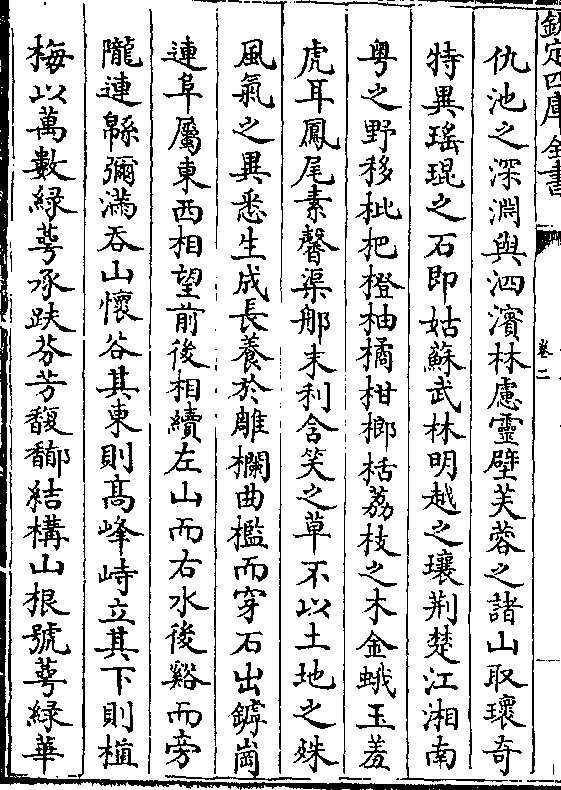 欽定四庫全書
卷二
仇池之深淵與泗濱林慮靈壁芙蓉之諸山取瓌奇
特異瑤琨之石即姑蘇武林明越之瓌荆楚江湘南
粤之野移枇杷橙柚橘柑榔栝荔枝之木金蛾玉羞
虎耳鳳尾素馨渠那末利含笑之草不以土地之殊
風氣之異悉生成長養於雕欄曲檻而穿石出罅崗
連阜屬東西相望前後相續左山而右水後谿而旁
隴連緜彌滿吞山懷谷其東則髙峰峙立其下則植
梅以萬數緑萼承趺芬芳馥郁結構山根號萼緑華